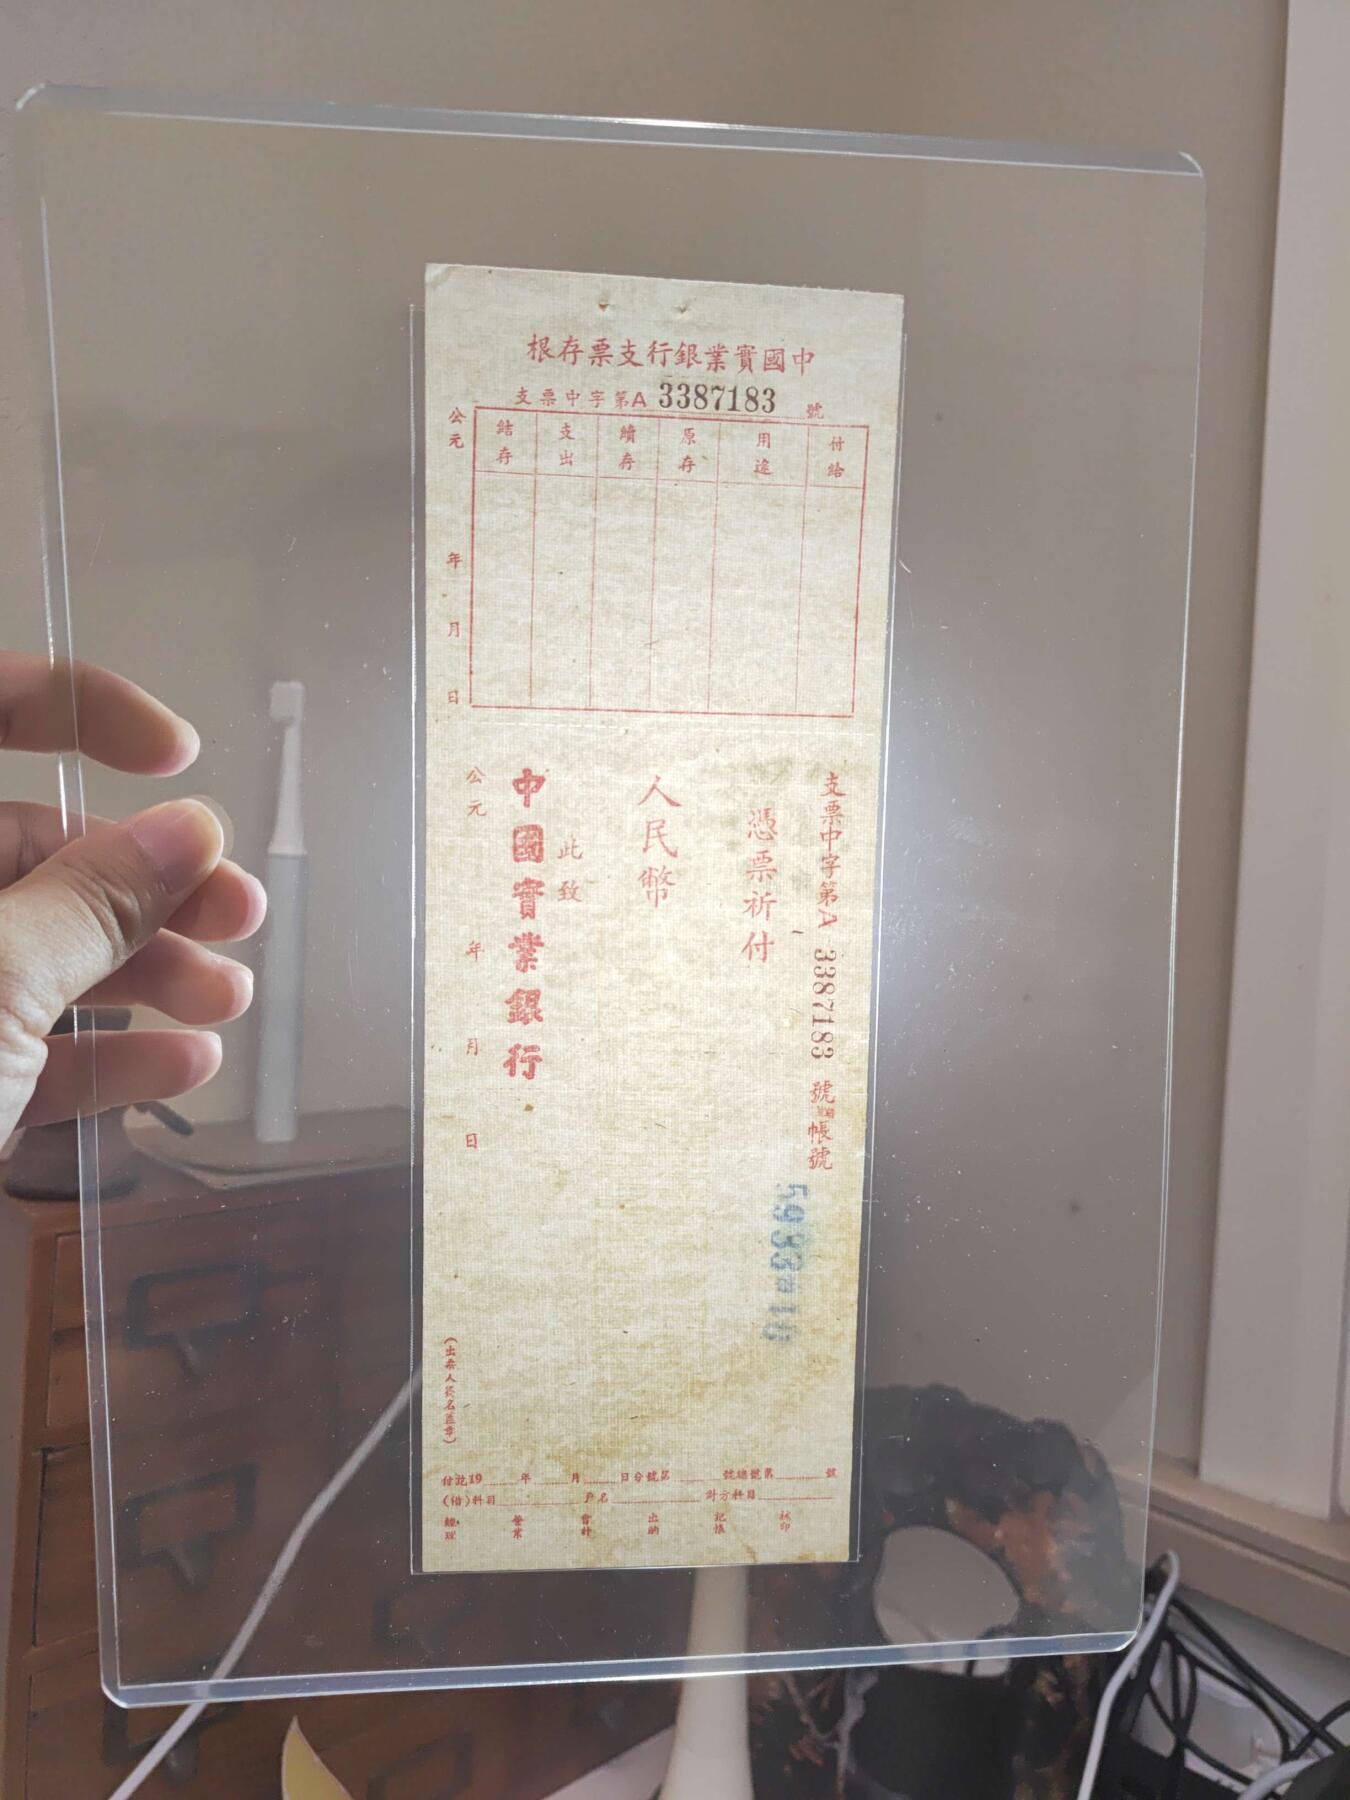 根存票支行銀業實國中
支票中字第A 3387183 號
公元 年 月 日
結存 支出 續存 原存 用途 付給
支票中字第A 3387183 號 帳號
5933-10
憑票祈付
人民幣
此致
中國實業銀行
公元 年 月 日
(出票人簽名蓋章)
付訖19 年 月 日分號第 號總號第 號
(借)科目 戶名 對方科目
經理 營業 會計 出納 記帳 核印